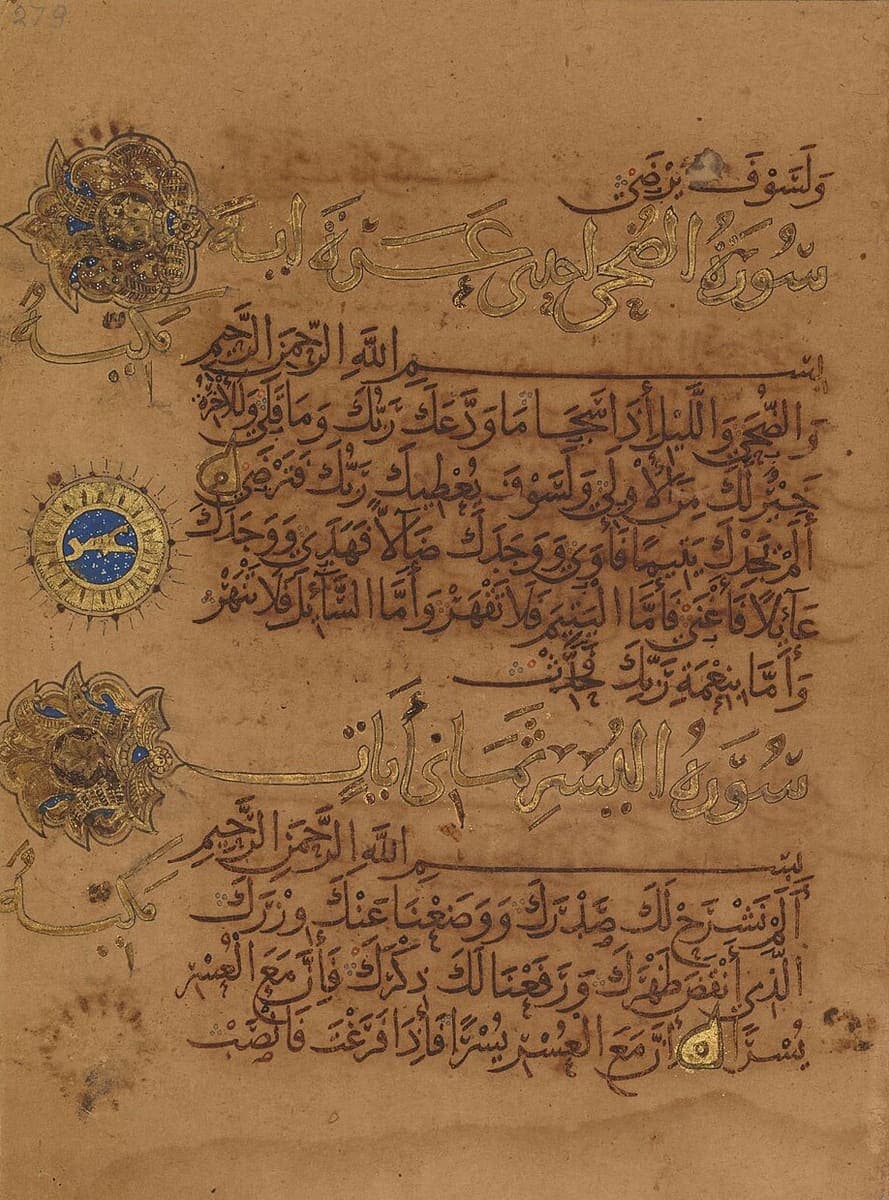 279
وَلَسَوْفَ يَرْضَى
سُورَةُ الضُّحَى احدى عَشَرَةَ ايَةً
مَكِّيَّةٌ
بِسْمِ اللَّهِ الرَّحْمَنِ الرَّحِيمِ
وَالضُّحَى وَاللَّيْلِ إِذَا سَجَا مَا وَدَّعَكَ رَبُّكَ وَمَا قَلَى وَلَلْآخِرَةُ
خَيْرٌ لَكَ مِنَ الْأُولَى وَلَسَوْفَ يُعْطِيكَ رَبُّكَ فَتَرْضَى
أَلَمْ يَجِدْكَ يَتِيمًا فَآوَى وَوَجَدَكَ ضَآلًّا فَهَدَى وَوَجَدَكَ
عشر
عَآئِلًا فَأَغْنَى فَأَمَّا الْيَتِيمَ فَلَا تَقْهَرْ وَأَمَّا السَّآئِلَ فَلَا تَنْهَرْ
وَأَمَّا بِنِعْمَةِ رَبِّكَ فَحَدِّثْ
سُوَرَةُ اليُسْرِ ثَمَانِي أَيَاتٍ
بِسْمِ اللَّهِ الرَّحْمَنِ الرَّحِيمِ
مَكِّيَّةٌ
أَلَمْ نَشْرَحْ لَكَ صَدْرَكَ وَوَضَعْنَا عَنْكَ وِزْرَكَ
الَّذِي أَنْقَضَ ظَهْرَكَ وَرَفَعْنَا لَكَ ذِكْرَكَ فَإِنَّ مَعَ الْعُسْرِ
يُسْرًا إِنَّ مَعَ الْعُسْرِ يُسْرًا فَإِذَا فَرَغْتَ فَانْصَبْ